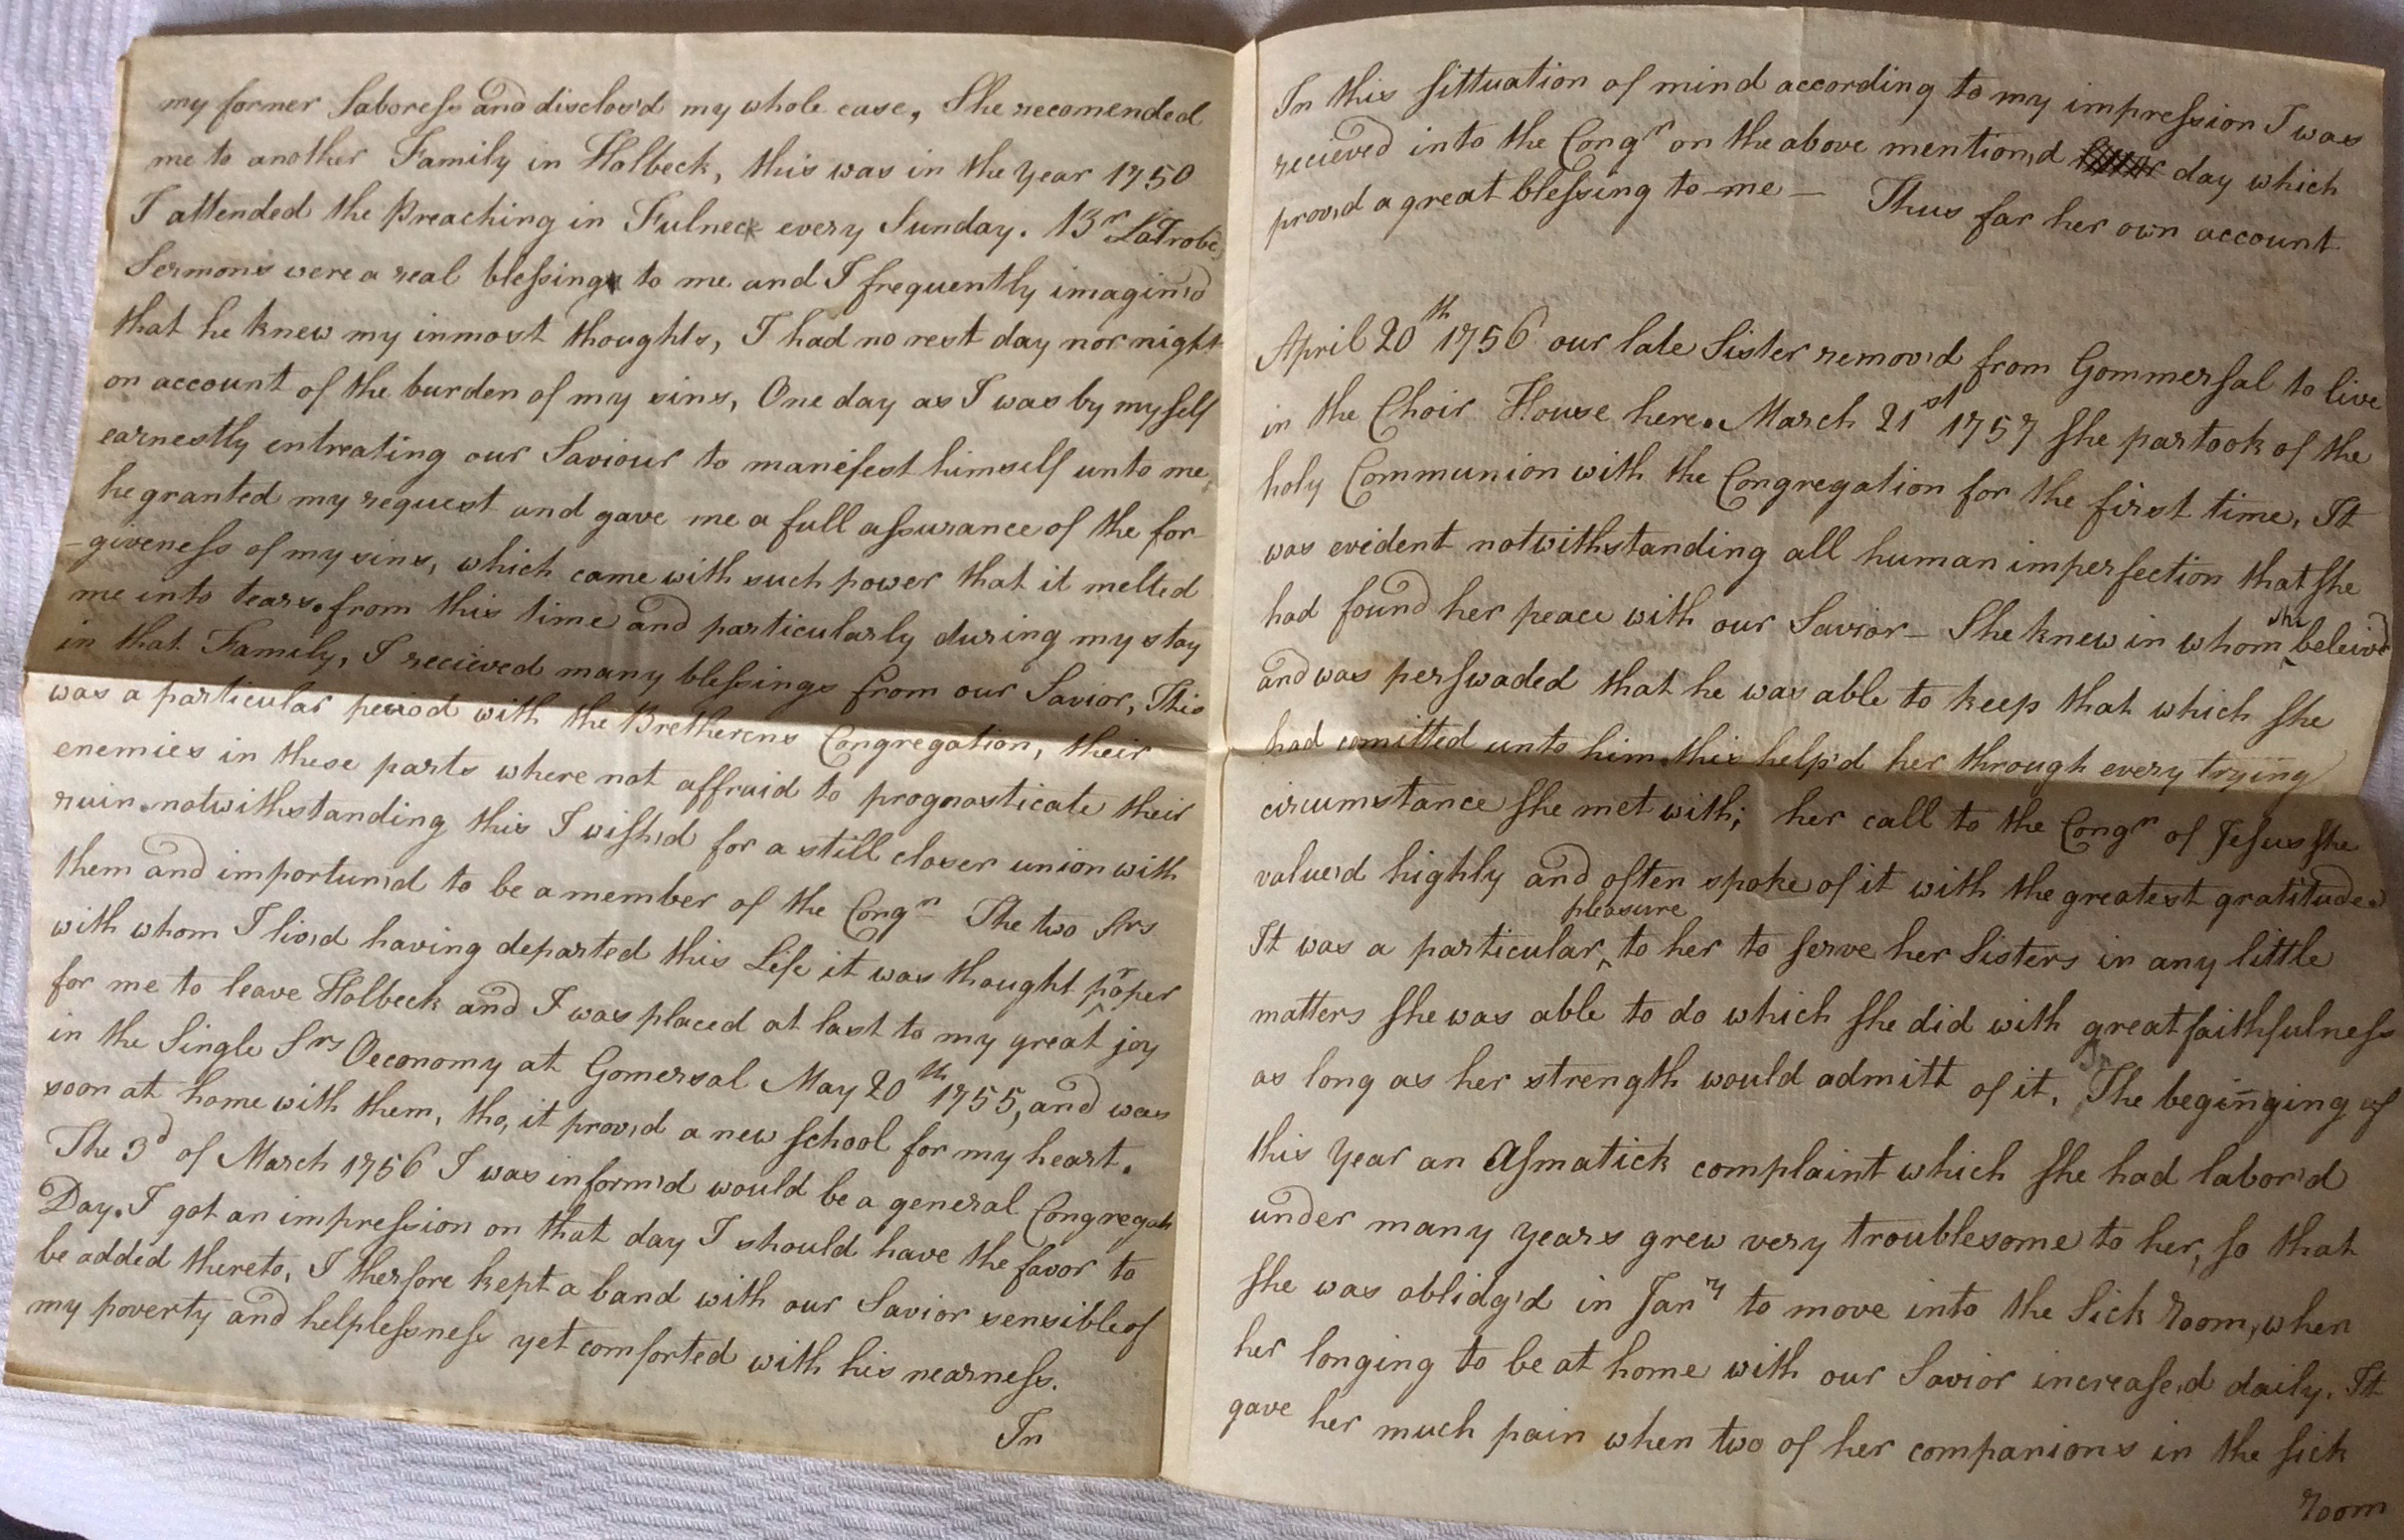 my former Laboress and disclos'd my whole case, She recomended
me to another Family in Holbeck, this was in the Year 1750
I attended the Preaching in Fulneck every Sunday. Br LaTrobe,
Sermons were a real blessing to me and I frequently imagin'd
that he knew my inmost thoughts, I had no rest day nor night
on account of the burden of my sins, One day as I was by myself
earnestly entreating our Saviour to manifest himself unto me,
he granted my request and gave me a full assurance of the for-
-giveness of my sins, which came with such power that it melted
me into tears. from this time and particularly during my stay
in that Family, I recieved many blessings from our Savior, This
was a particular period with the Bretherens Congregation, their
enemies in these parts where not affraid to prognosticate their
ruin. notwithstanding this I wish'd for a still closer union with
them and importun'd to be a member of the Congn The two Srs
with whom I liv'd having departed this Life it was thought proper
for me to leave Holbeck and I was placed at last to my great joy
in the Single Srs Oeconomy at Gomersal May 20th 1755, and was
soon at home with them, tho, it prov'd a new school for my heart.
The 3d of March 1756 I was inform'd would be a general Congregatn
Day. I got an impression on that day I should have the favor to
be added thereto, I therfore kept a band with our Savior sensible of
my poverty and helplessness yet comforted with his nearness.
In
In this sittuation of mind according to my impression I was
recieved into the Congn on the above mention'd day which
prov'd a great blessing to me — Thus far her own account
April 20th 1756 our late Sister remov'd from Gommersal to live
in the Choir House here. March 21st 1757 she partook of the
holy Communion with the Congregation for the first time, It
was evident notwithstanding all human imperfection that she
had found her peace with our Savior – She knew in whom she beleiv'd
and was perswaded that he was able to keep that which she
had comitted unto him. this help'd her through every trying
circumstance she met with; her call to the Congn of Jesus she
valued highly and often spoke of it with the greatest gratitude.
It was a particular pleasure to her to serve her Sisters in any little
matters she was able to do which she did with great faithfulness
as long as her strength would admitt of it. The beginging of
this Year an Asmatick complaint which she had labor'd
under many years grew very troublesome to her, so that
she was oblidg'd in Janry to move into the Sick Room, when
her longing to be at home with our Savior increase'd daily. It
gave her much pain when two of her companions in the sick
room